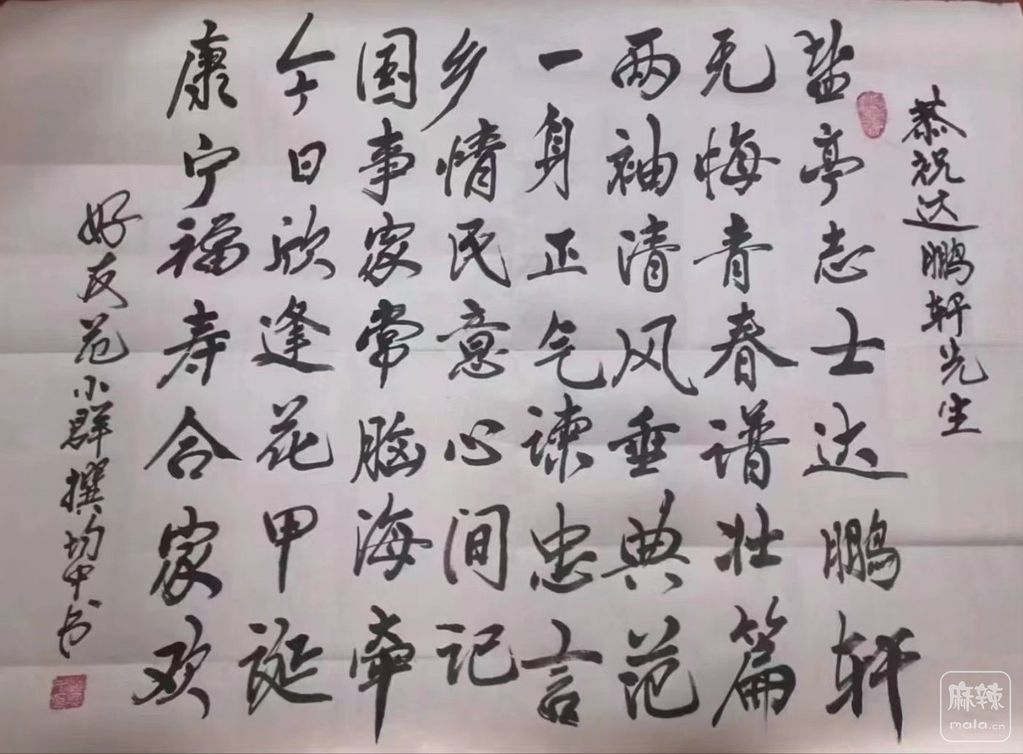 恭祝达鹏轩先生
盐亭志士达鹏轩
无悔青春谱壮篇
两袖清风垂典范
一身正气谏忠言
乡情民意心间记
国事家常脑海牵
今日欣逢花甲诞
康宁福寿合家欢
好友范小群撰均中书
麻辣
mala.cn